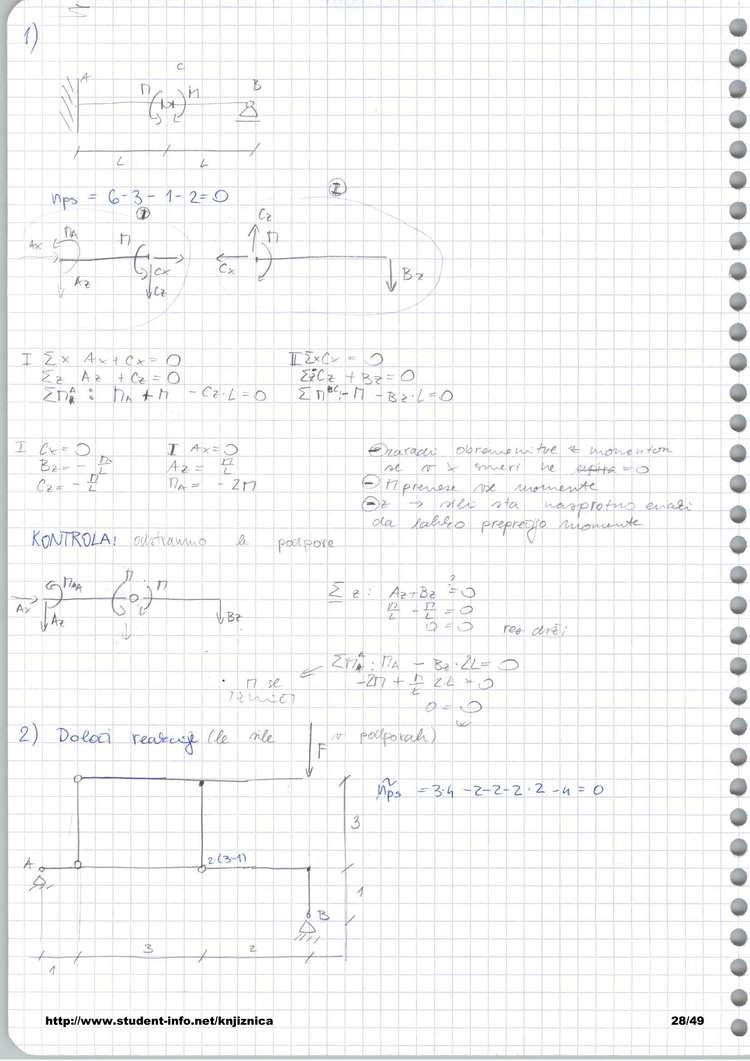 1)
A C B
M M
L L
nps = 6 - 3 - 1 - 2 = 0
I II
Ax MA Az M Cx Cz
Cz M Cx Bz
I Σx Ax + Cx = 0
Σz Az + Cz = 0
ΣM^A: MA + M - Cz·L = 0
II Σx Cx = 0
Σz Cz + Bz = 0
ΣM^C: -M - Bz·L = 0
I Cx = 0
Bz = - M/L
Cz = - M/L
I Ax = 0
Az = M/L
MA = - 2M
zaradi obremenitve z momentom
se v x smeri ne = 0
- M prenese vse momente
- z → sili sta nasprotno enaki
da lahko preprečijo momente
KONTROLA: odstranimo le podpore
Ax MA Az M M Bz
Σ z: Az + Bz ?= 0
M/L - M/L = 0
0 = 0 res drži
ΣM^A: MA - Bz·2L = 0
-2M + M/L 2L = 0
0 = 0
M se
izniči
2) Določi reakcije (le sile v podporah)
F
ñps = 3·4 - 2 - 2 - 2·2 - 4 = 0
3
A 2·(3-1)
1
B
3 2
1
http://www.student-info.net/knjiznica 28/49